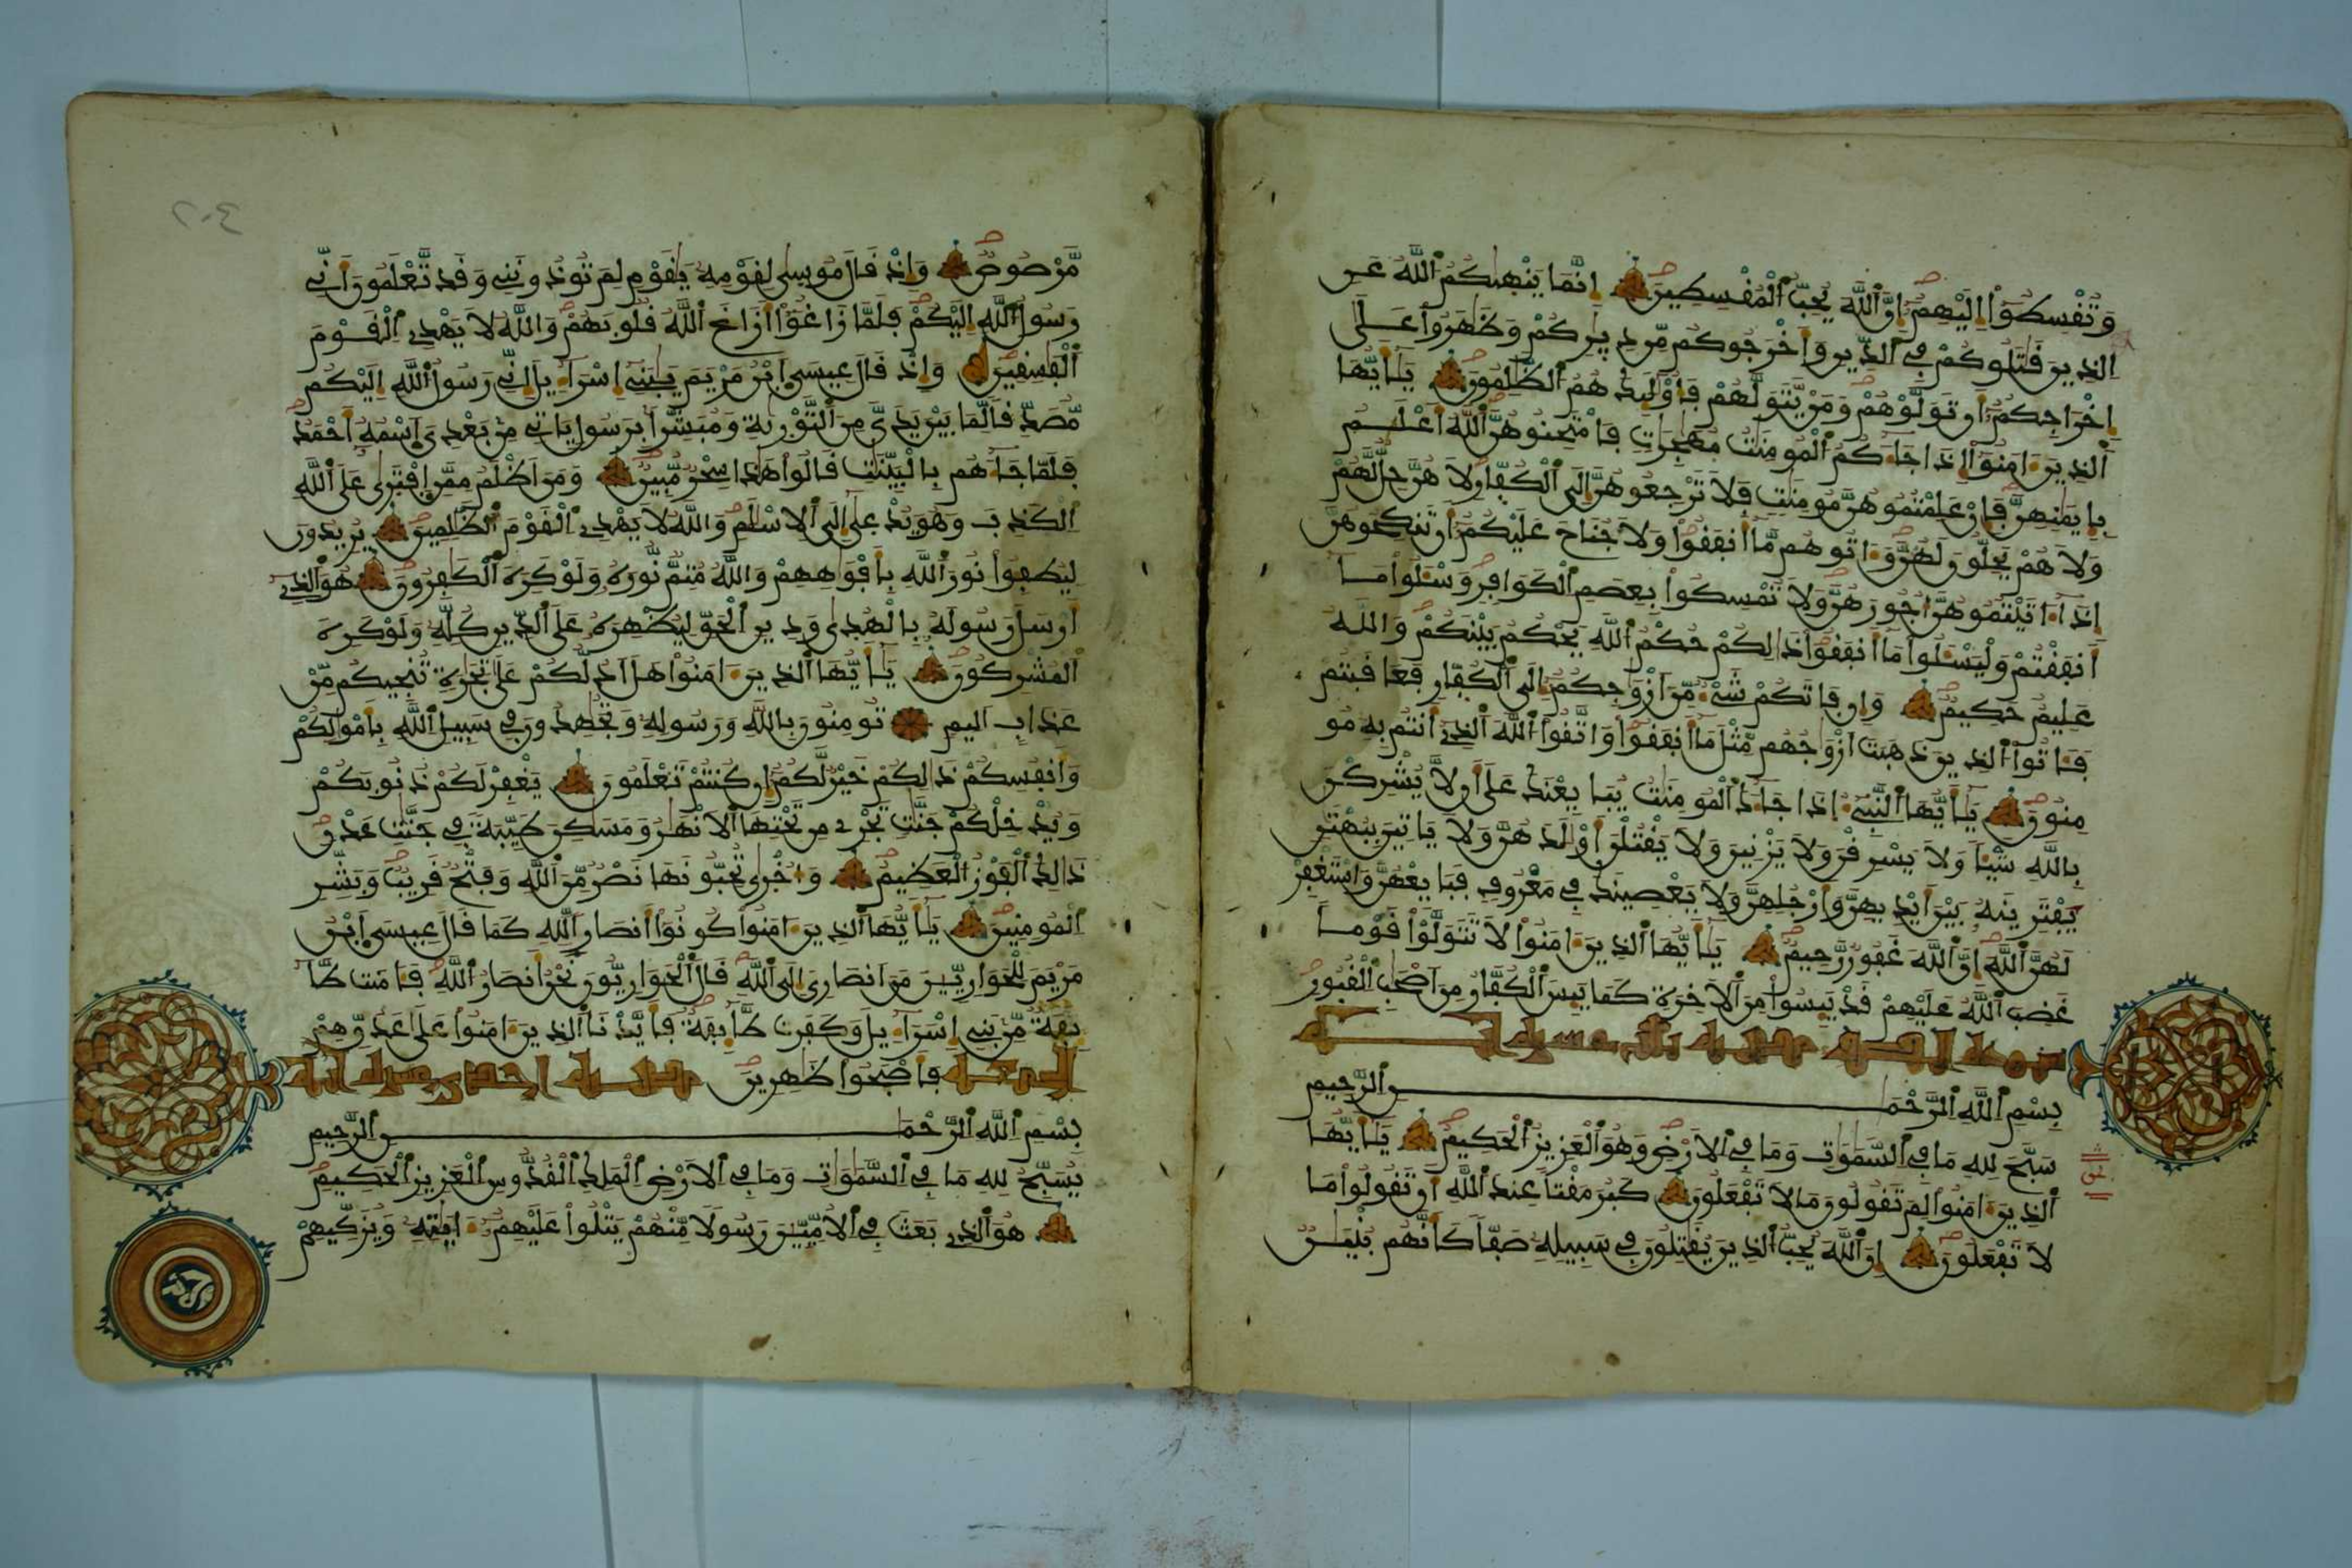 وَتُفْسِطُوٓاْ إِلَيْهِمُۥٓ إِنَّ ٱللَّهَ يُحِبُّ ٱلْمُفْسِطِينَ إِنَّمَا يَنْهَىٰكُمُ ٱللَّهُ عَنِ
ٱلذِينَ قَٰتَلُوكُمْ فِى ٱلدِّينِ وَأَخْرَجُوكُم مِّن دِيٰرِكُمْ وَظَٰهَرُواْ عَلَىٰٓ
إِخْرَاجِكُمُۥٓ أَن تَوَلَّوْهُمْ وَمَنْ يَّتَوَلَّهُمْ فَأُوْلَٰٓئِكَ هُمُ ٱلظَّٰلِمُونَ يَٰٓأَيُّهَا
ٱلذِينَ ءَامَنُوٓاْ إِذَا جَآءَكُمُ ٱلْمُومِنَٰتُ مُهَٰجِرَٰتٍ فَامْتَحِنُوهُنَّ ٱللَّهُ أَعْلَمُ
بِإِيمَٰنِهِنَّ فَإِنْ عَلِمْتُمُوهُنَّ مُومِنَٰتٍ فَلَا تَرْجِعُوهُنَّ إِلَى ٱلْكُفّارِ لَا هُنَّ حِلٌّ لَّهُمْ
وَلَا هُمْ يَحِلُّونَ لَهُنَّ وَءَاتُوهُم مَّآ أَنفَقُواْ وَلَا جُنَاحَ عَلَيْكُمُۥٓ أَن تَنكِحُوهُنَّ
إِذَآ ءَاتَيْتُمُوهُنَّ أُجُورَهُنَّ وَلَا تُمْسِكُواْ بِعِصَمِ ٱلْكَوَافِرِ وَسْـَٔلُواْ مَآ
أَنفَقْتُمْ وَلْيَسْـَٔلُواْ مَآ أَنفَقُواْ ذَٰلِكُمْ حُكْمُ ٱللَّهِ يَحْكُمُ بَيْنَكُمْ وَاللَّهُ
عَلِيمٌ حَكِيمٌ وَإِن فَاتَكُمْ شَىْءٌ مِّنَ اَزْوَٰجِكُمُۥٓ إِلَى ٱلْكُفّارِ فَعَاقَبْتُمْ
فَـَٔاتُواْ ٱلذِينَ ذَهَبَتَ اَزْوَٰجُهُم مِّثْلَ مَآ أَنفَقُواْ وَاتَّقُواْ ٱللَّهَ ٱلذِىٓ أَنتُم بِهِۦ مُو
مِنُونَ يَٰٓأَيُّهَا ٱلنَّبِىٓءُ إِذَا جَآءَكَ ٱلْمُومِنَٰتُ يُبَايِعْنَكَ عَلَىٰٓ أَن لَّا يُشْرِكْنَ
بِاللَّهِ شَيْـًٔا وَلَا يَسْرِقْنَ وَلَا يَزْنِينَ وَلَا يَقْتُلْنَ أَوْلَٰدَهُنَّ وَلَا يَاتِينَ بِبُهْتَٰنٍ
يَفْتَرِينَهُۥ بَيْنَ أَيْدِيهِنَّ وَأَرْجُلِهِنَّ وَلَا يَعْصِينَكَ فِى مَعْرُوفٍ فَبَايِعْهُنَّ وَاسْتَغْفِرْ
لَهُنَّ ٱللَّهَ إِنَّ ٱللَّهَ غَفُورٌ رَّحِيمٌ يَٰٓأَيُّهَا ٱلذِينَ ءَامَنُواْ لَا تَتَوَلَّوْاْ قَوْمًا
غَضِبَ ٱللَّهُ عَلَيْهِمْ قَدْ يَئِسُواْ مِنَ ٱلَاخِرَةِ كَمَا يَئِسَ ٱلْكُفَّارُ مِنَ اَصْحَٰبِ ٱلْقُبُورِ
بِسْمِ ٱللَّهِ ٱلرَّحْمَٰنِ ٱلرَّحِيمِ
سَبَّحَ لِلهِ مَا فِى ٱلسَّمَٰوَٰتِ وَمَا فِى ٱلَارْضِ وَهُوَ ٱلْعَزِيزُ ٱلْحَكِيمُ يَٰٓأَيُّهَا
ٱلذِينَ ءَامَنُواْ لِمَ تَقُولُونَ مَا لَا تَفْعَلُونَ كَبُرَ مَقْتًا عِندَ ٱللَّهِ أَن تَقُولُواْ مَا
لَا تَفْعَلُونَ إِنَّ ٱللَّهَ يُحِبُّ ٱلذِينَ يُقَٰتِلُونَ فِى سَبِيلِهِۦ صَفًّا كَأَنَّهُم بُنْيَٰنٌ
مَّرْصُوصٌ وَإِذْ قَالَ مُوسِىٰ لِقَوْمِهِۦ يَٰقَوْمِ لِمَ تُوذُونَنِى وَقَد تَّعْلَمُونَ أَنِّى
رَسُولُ ٱللَّهِ إِلَيْكُمْ فَلَمَّا زَاغُوٓاْ أَزَاغَ ٱللَّهُ قُلُوبَهُمْ وَاللَّهُ لَا يَهْدِى ٱلْقَوْمَ
ٱلْفَٰسِقِينَ وَإِذْ قَالَ عِيسَى ٱبْنُ مَرْيَمَ يَٰبَنِىٓ إِسْرَآءِيلَ إِنِّى رَسُولُ ٱللَّهِ إِلَيْكُم
مُّصَدِّقًا لِّمَا بَيْنَ يَدَىَّ مِنَ ٱلتَّوْرَيٰةِ وَمُبَشِّرًا بِرَسُولٍ يَاتِى مِنۢ بَعْدِىَ ٱسْمُهُۥٓ أَحْمَدُ
فَلَمَّا جَآءَهُم بِالْبَيِّنَٰتِ قَالُواْ هَٰذَا سِحْرٌ مُّبِينٌ وَمَنَ اَظْلَمُ مِمَّنِ ٱفْتَرَىٰ عَلَى ٱللَّهِ
ٱلْكَذِبَ وَهُوَ يُدْعَىٰٓ إِلَى ٱلِاسْلَٰمِ وَاللَّهُ لَا يَهْدِى ٱلْقَوْمَ ٱلظَّٰلِمِينَ يُرِيدُونَ
لِيُطْفِـُٔواْ نُورَ ٱللَّهِ بِأَفْوَٰهِهِمْ وَاللَّهُ مُتِمٌّ نُّورَهُۥ وَلَوْ كَرِهَ ٱلْكَٰفِرُونَ هُوَ ٱلذِىٓ
أَرْسَلَ رَسُولَهُۥ بِالْهُدَىٰ وَدِينِ ٱلْحَقِّ لِيُظْهِرَهُۥ عَلَى ٱلدِّينِ كُلِّهِۦ وَلَوْ كَرِهَ
ٱلْمُشْرِكُونَ يَٰٓأَيُّهَا ٱلذِينَ ءَامَنُواْ هَلَ اَدُلُّكُمْ عَلَىٰ تِجَٰرَةٍ تُنجِيكُم مِّنْ
عَذَابٍ اَلِيمٍ تُومِنُونَ بِاللَّهِ وَرَسُولِهِۦ وَتُجَٰهِدُونَ فِى سَبِيلِ ٱللَّهِ بِأَمْوَٰلِكُمْ
وَأَنفُسِكُمْ ذَٰلِكُمْ خَيْرٌ لَّكُمُۥٓ إِن كُنتُمْ تَعْلَمُونَ يَغْفِرْ لَكُمْ ذُنُوبَكُمْ
وَيُدْخِلْكُمْ جَنَّٰتٍ تَجْرِى مِن تَحْتِهَا ٱلَانْهَٰرُ وَمَسَٰكِنَ طَيِّبَةً فِى جَنَّٰتِ عَدْنٍ
ذَٰلِكَ ٱلْفَوْزُ ٱلْعَظِيمُ وَأُخْرَىٰ تُحِبُّونَهَا نَصْرٌ مِّنَ ٱللَّهِ وَفَتْحٌ قَرِيبٌ وَبَشِّرِ
ٱلْمُومِنِينَ يَٰٓأَيُّهَا ٱلذِينَ ءَامَنُواْ كُونُوٓاْ أَنصَارًا لِّلهِ كَمَا قَالَ عِيسَى ٱبْنُ
مَرْيَمَ لِلْحَوَارِيِّـۧنَ مَنَ اَنصَارِىَ إِلَى ٱللَّهِ قَالَ ٱلْحَوَارِيُّونَ نَحْنُ أَنصَارُ ٱللَّهِ فَـَٔامَنَت طَّآ
ئِفَةٌ مِّنۢ بَنِىٓ إِسْرَآءِيلَ وَكَفَرَت طَّآئِفَةٌ فَأَيَّدْنَا ٱلذِينَ ءَامَنُواْ عَلَىٰ عَدُوِّهِمْ
فَأَصْبَحُواْ ظَٰهِرِينَ
بِسْمِ ٱللَّهِ ٱلرَّحْمَٰنِ ٱلرَّحِيمِ
يُسَبِّحُ لِلهِ مَا فِى ٱلسَّمَٰوَٰتِ وَمَا فِى ٱلَارْضِ ٱلْمَلِكِ ٱلْقُدُّوسِ ٱلْعَزِيزِ ٱلْحَكِيمِ
هُوَ ٱلذِى بَعَثَ فِى ٱلُامِّيِّـۧنَ رَسُولًا مِّنْهُمْ يَتْلُواْ عَلَيْهِمُۥٓ ءَايَٰتِهِۦ وَيُزَكِّيهِمْ